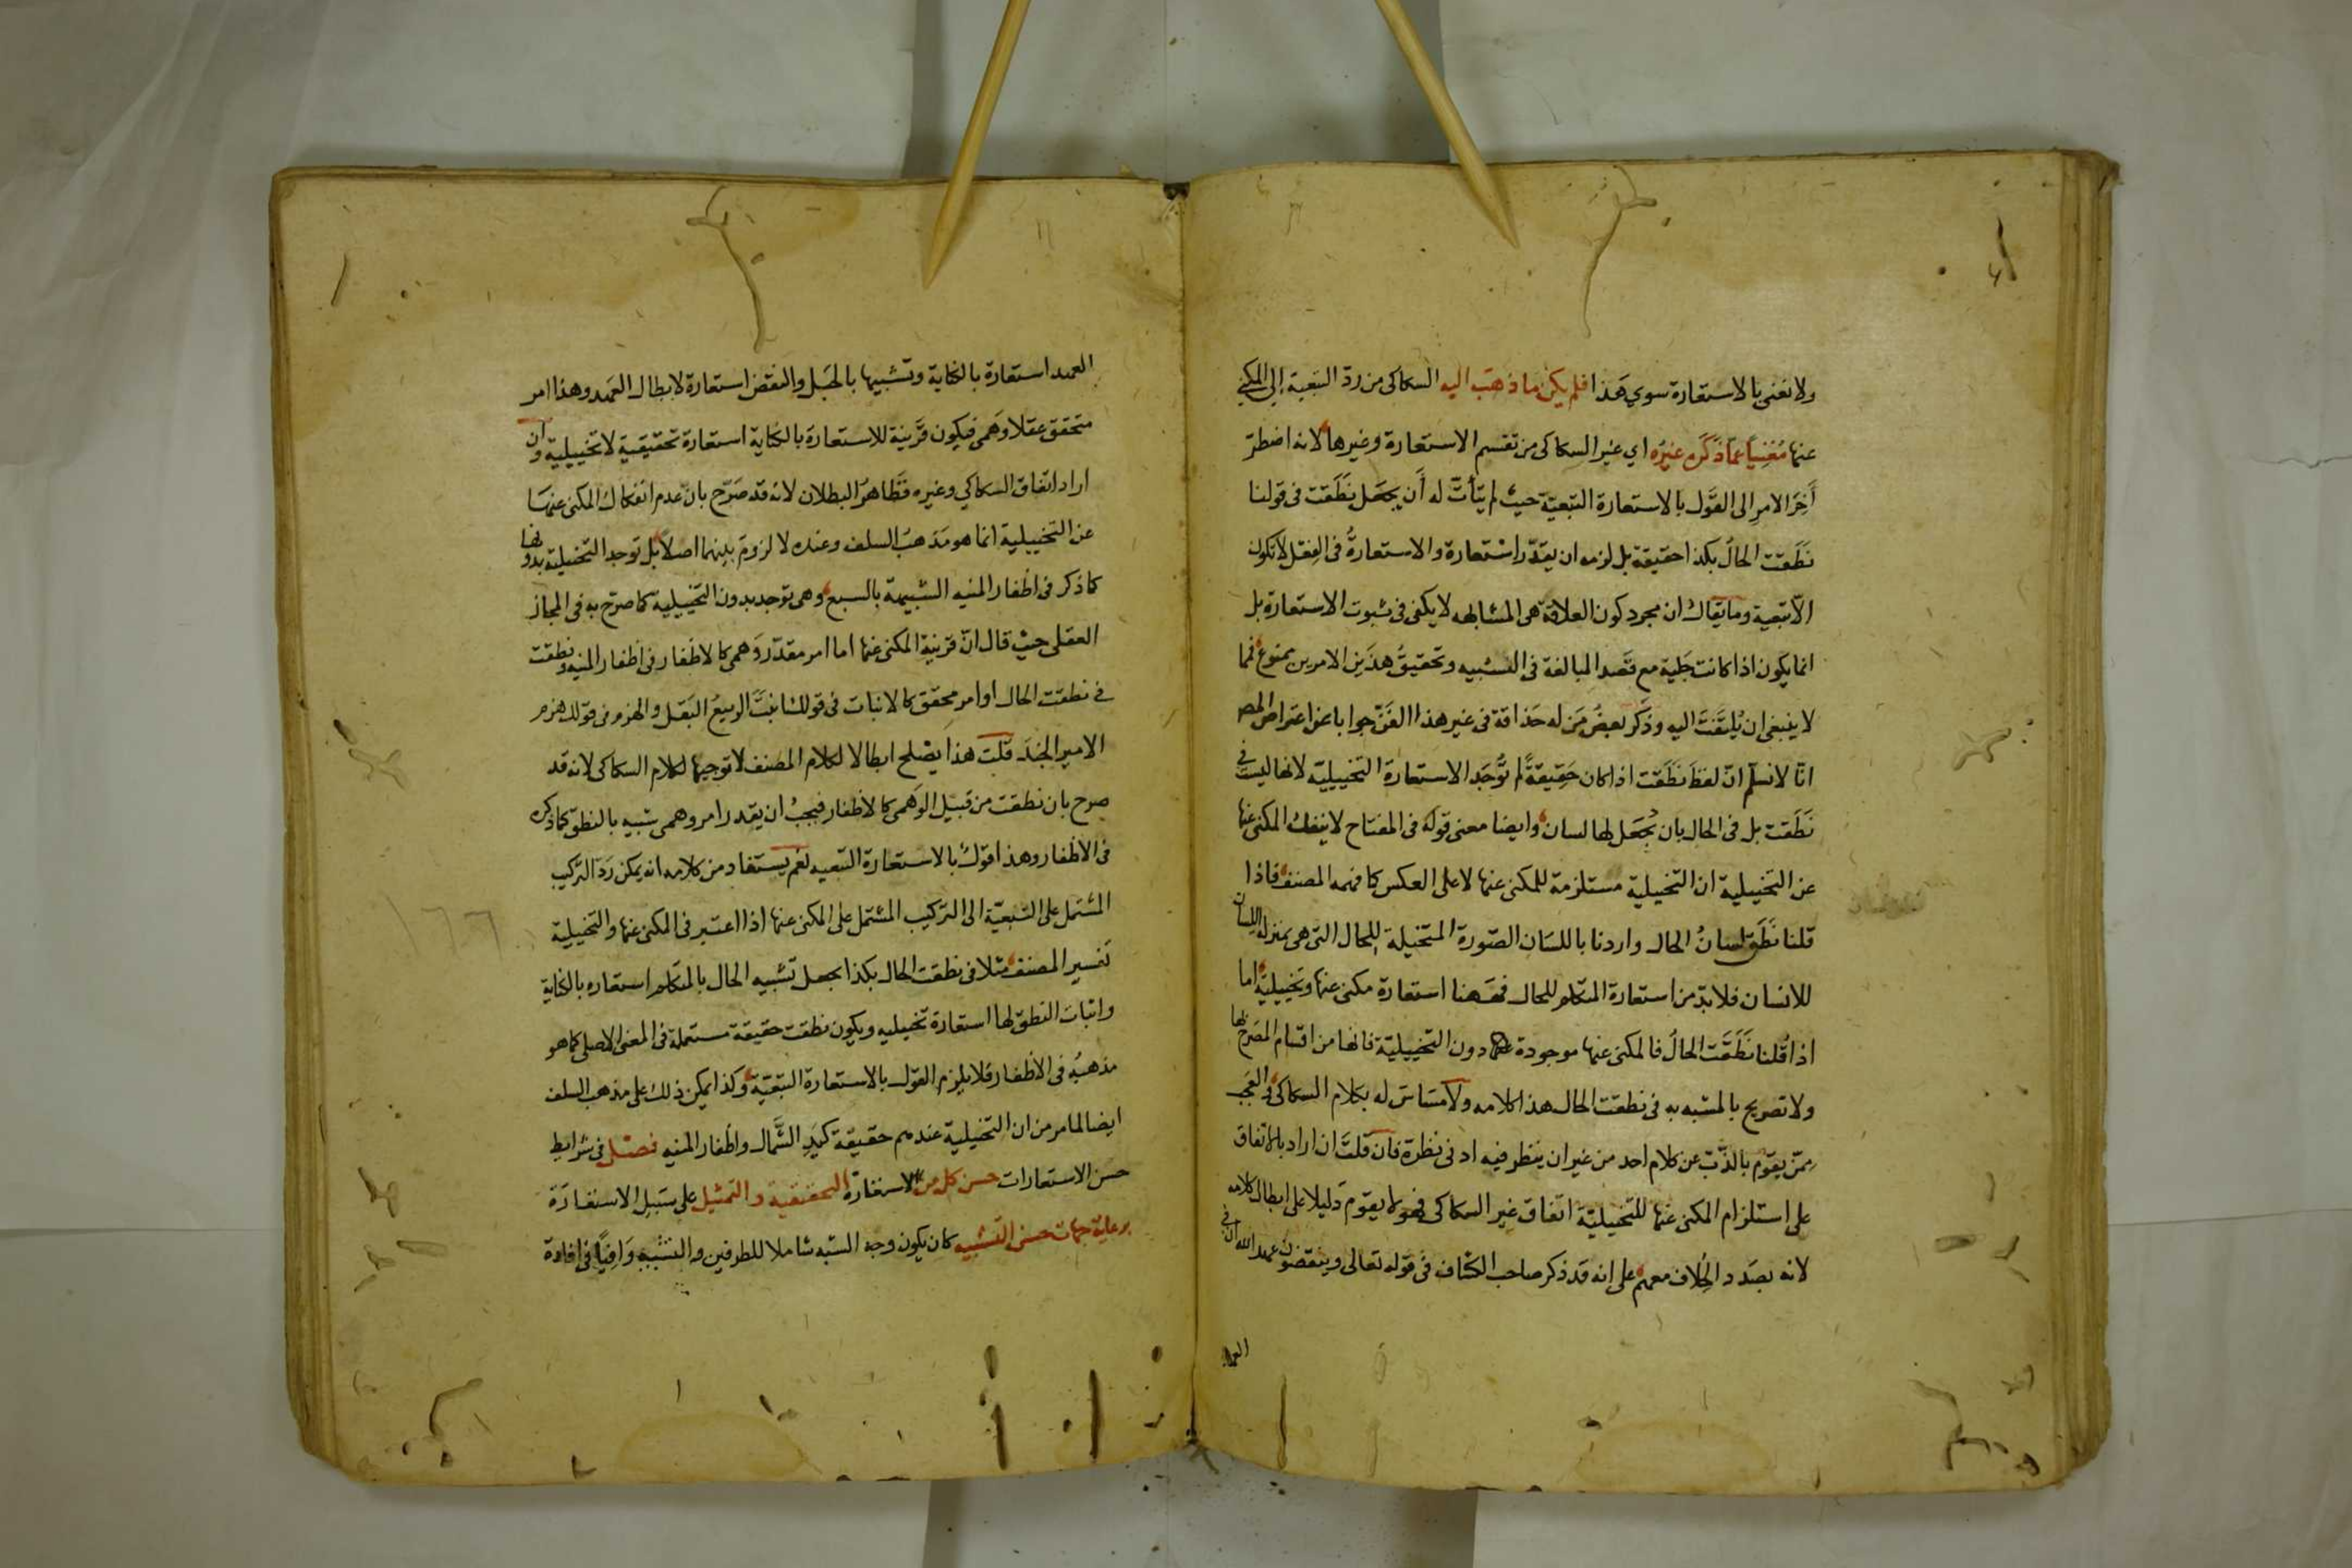 ولا نعنى بالاستعارة سوي هَذا فلم يكن ما ذهب اليه السكاكى من ردّ التبعية إلى المكني
عنها مُغنِياً عمّا ذكَره غيرُه اي غير السكاكى من تقسيم الاستعارة وغيرها لانه اضطرّ
آخِرَ الامرِ الى القَول بالاستعارة التبعيّة حيث لم يتأتّ له أن يجعَل نَطَقت فى قولنا
نَطَقت الحالُ بكذا حقيقة بل لزمه ان يقدّر استعارة والاستعارةُ فى الفِعل لا تكون
الّا تبعية وما يقال ان مجرد كون العلاقة هى المشابهه لا يكفى فى ثبوت الاستعارة بل
انما يكون اذا كانت جَلية مع قصد المبالغة فى التشبيه وتحقيقُ هذَين الامرين ممنوع فمما
لا ينبغى ان يُلتَفَتَ اليه وذَكَر بعضُ مَن له حَذاقة فى غير هذا الفَنّ جوابا عن اعتراض المصـ
انّا لا نسلّم انّ لفظَ نَطَقت اذا كان حَقِيقةً لم تُوجَد الاستعارة التخييلية لانها ليست فى
نَطَقت بل فى الحال بان يُجعَل لها لسان وايضا معنى قوله فى المفتاح لا ينفك المكنى عنها
عن التخييلية ان التخيلية مستلزمة للمكنى عنها لا على العكس كما فهمه المصنف فاذا
قلنا نَطَق لسانُ الحال واردنا باللسَان الصّورة المتخيلة للحال التى هى بمنزله اللسان
للانسان فلا بدّ من استعارة المتكلم للحال فههنا استعارة مكنى عنها وتخييلية اما
اذا قُلنا نَطَقَت الحالُ فالمكنى عنها موجودة دون التخييليّة فانها من اقسام المصَرح بها
ولا تصريح بالمشبه به فى نطقت الحال هذا كلامه ولا مَسَاسَ له بكلام السكاكى والعجب
ممّن يقوّم بالذّب عن كلام احد من غير ان ينظر فيه ادنى نظرة فان قلتَ ان اراد بالاتفاق
على استلزام المكنى عنها للتخييليّة اتفاق غير السكاكى فهو لا يقوم دليلا على ابطال كلامه
لانه بصَدد الخِلاف معهم على انه قد ذكر صاحب الكشاف فى قوله تعالى وينقضون عهد الله ان فى
العهد استعارة بالكناية وتشبيها بالحَبل والنقض استعارة لابطال العهد وهذا امر
متحقق عقلا وَهمى فيكون قرينة للاستعارة بالكناية استعارة تحقيقية لا تخييلية وان
اراد اتفاق السكاكي وغيره فظاهرُ البطلان لانه قد صَرّح بانّ عدم انفكاك المكنى عنهَا
عن التخييلية انما هو مَذهبُ السلف وعنده لا لزومَ بينهما اصلا بل توجد التخيلية بدونها
كما ذكر فى اظفار المنيه الشبيهة بالسبع وهى توجد بدون التخييلية كما صرّح به فى المجاز
العقلى حيث قال انّ قرينة المكنى عنها اما امر مقدّر وَهمى كالاظفار فى اظفار المنيه ونطقت
فى نطقت الحال او امر محقق كالانبات فى قولك انبتَ الربيعُ البَقل والهزم فى قولك هزم
الامير الجندَ قلت هذا يصْلح ابطالا لكلام المصنف لا توجيها لكلام السكاكى لانه قد
صرح بان نطقت من قبيل الوَهمى كالاظفار فيجبُ ان يقدر امر وهمى شبيه بالنطق كما ذكره
فى الاظفار وهذا قول بالاستعارة التبعيه نعم يستفاد من كلامه انه يمكن رَدّ التركيب
المشتمل على التبعيّة الى التركيب المشتمل على المكنى عنها اذا اعتبر فى المكنى عنها والتخيلية
تفسير المصنف مثلا فى نطقت الحال بكذا بجعل تشبيه الحال بالمتكلم استعاره بالكناية
واثبات النطق لها استعارة تخييليه ويكون نطقت حقيقة مستعملة فى المعنى الاصلى كما هو
مذهبُه فى الاظفار فلا يلزم القول بالاستعارة التبعيّة وكذا يمكن ذلك على مذهب السلف
ايضا لما مر من ان التخيلية عندهم حقيقة كيَدِ الشَّمال واظفار المنيه فصل فى شرايط
حسن الاستعارات حسن كل من الاستعارة التحقيقية والتمثيل على سَبيل الاستعارَة
برعاية جهات حسن التشبيه كان يكون وجه الشبه شاملا للطرفين والتشبيه وَافِياً فى افادة
العهد
١٦٦